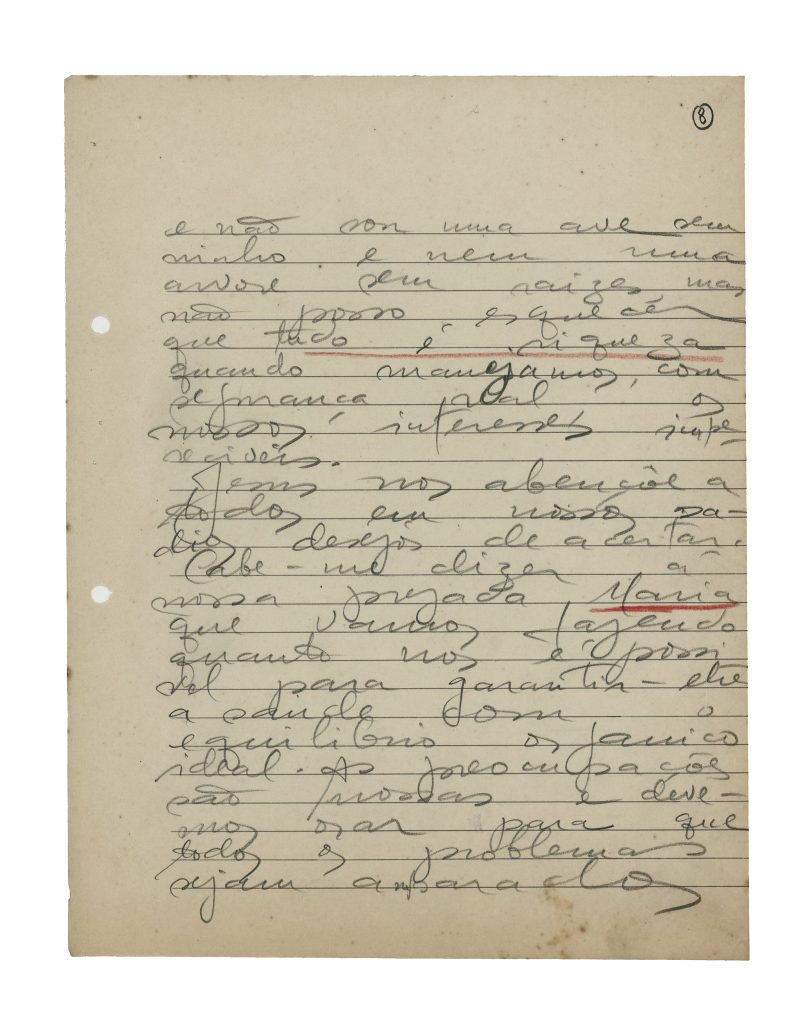 8
e não sou uma ave sem
ninho e nem uma
arvore sem raizes, mas
não posso esquecêr
que tudo é riqueza
quando manejamos, com
segurança real os
nossos interesses impe-
reciveis.
Jesus nos abençôe a
todos em nossos sa-
dios desejos de acertar.
Cabe-me dizer á
nossa prezada Maria
que vamos fazendo
quanto nos é possi
vel para garantir-
a saude com o
equilibrio organico
ideal. As preocupações
são nossas e deve-
mos orar para que
todos os problemas
sejam amparados